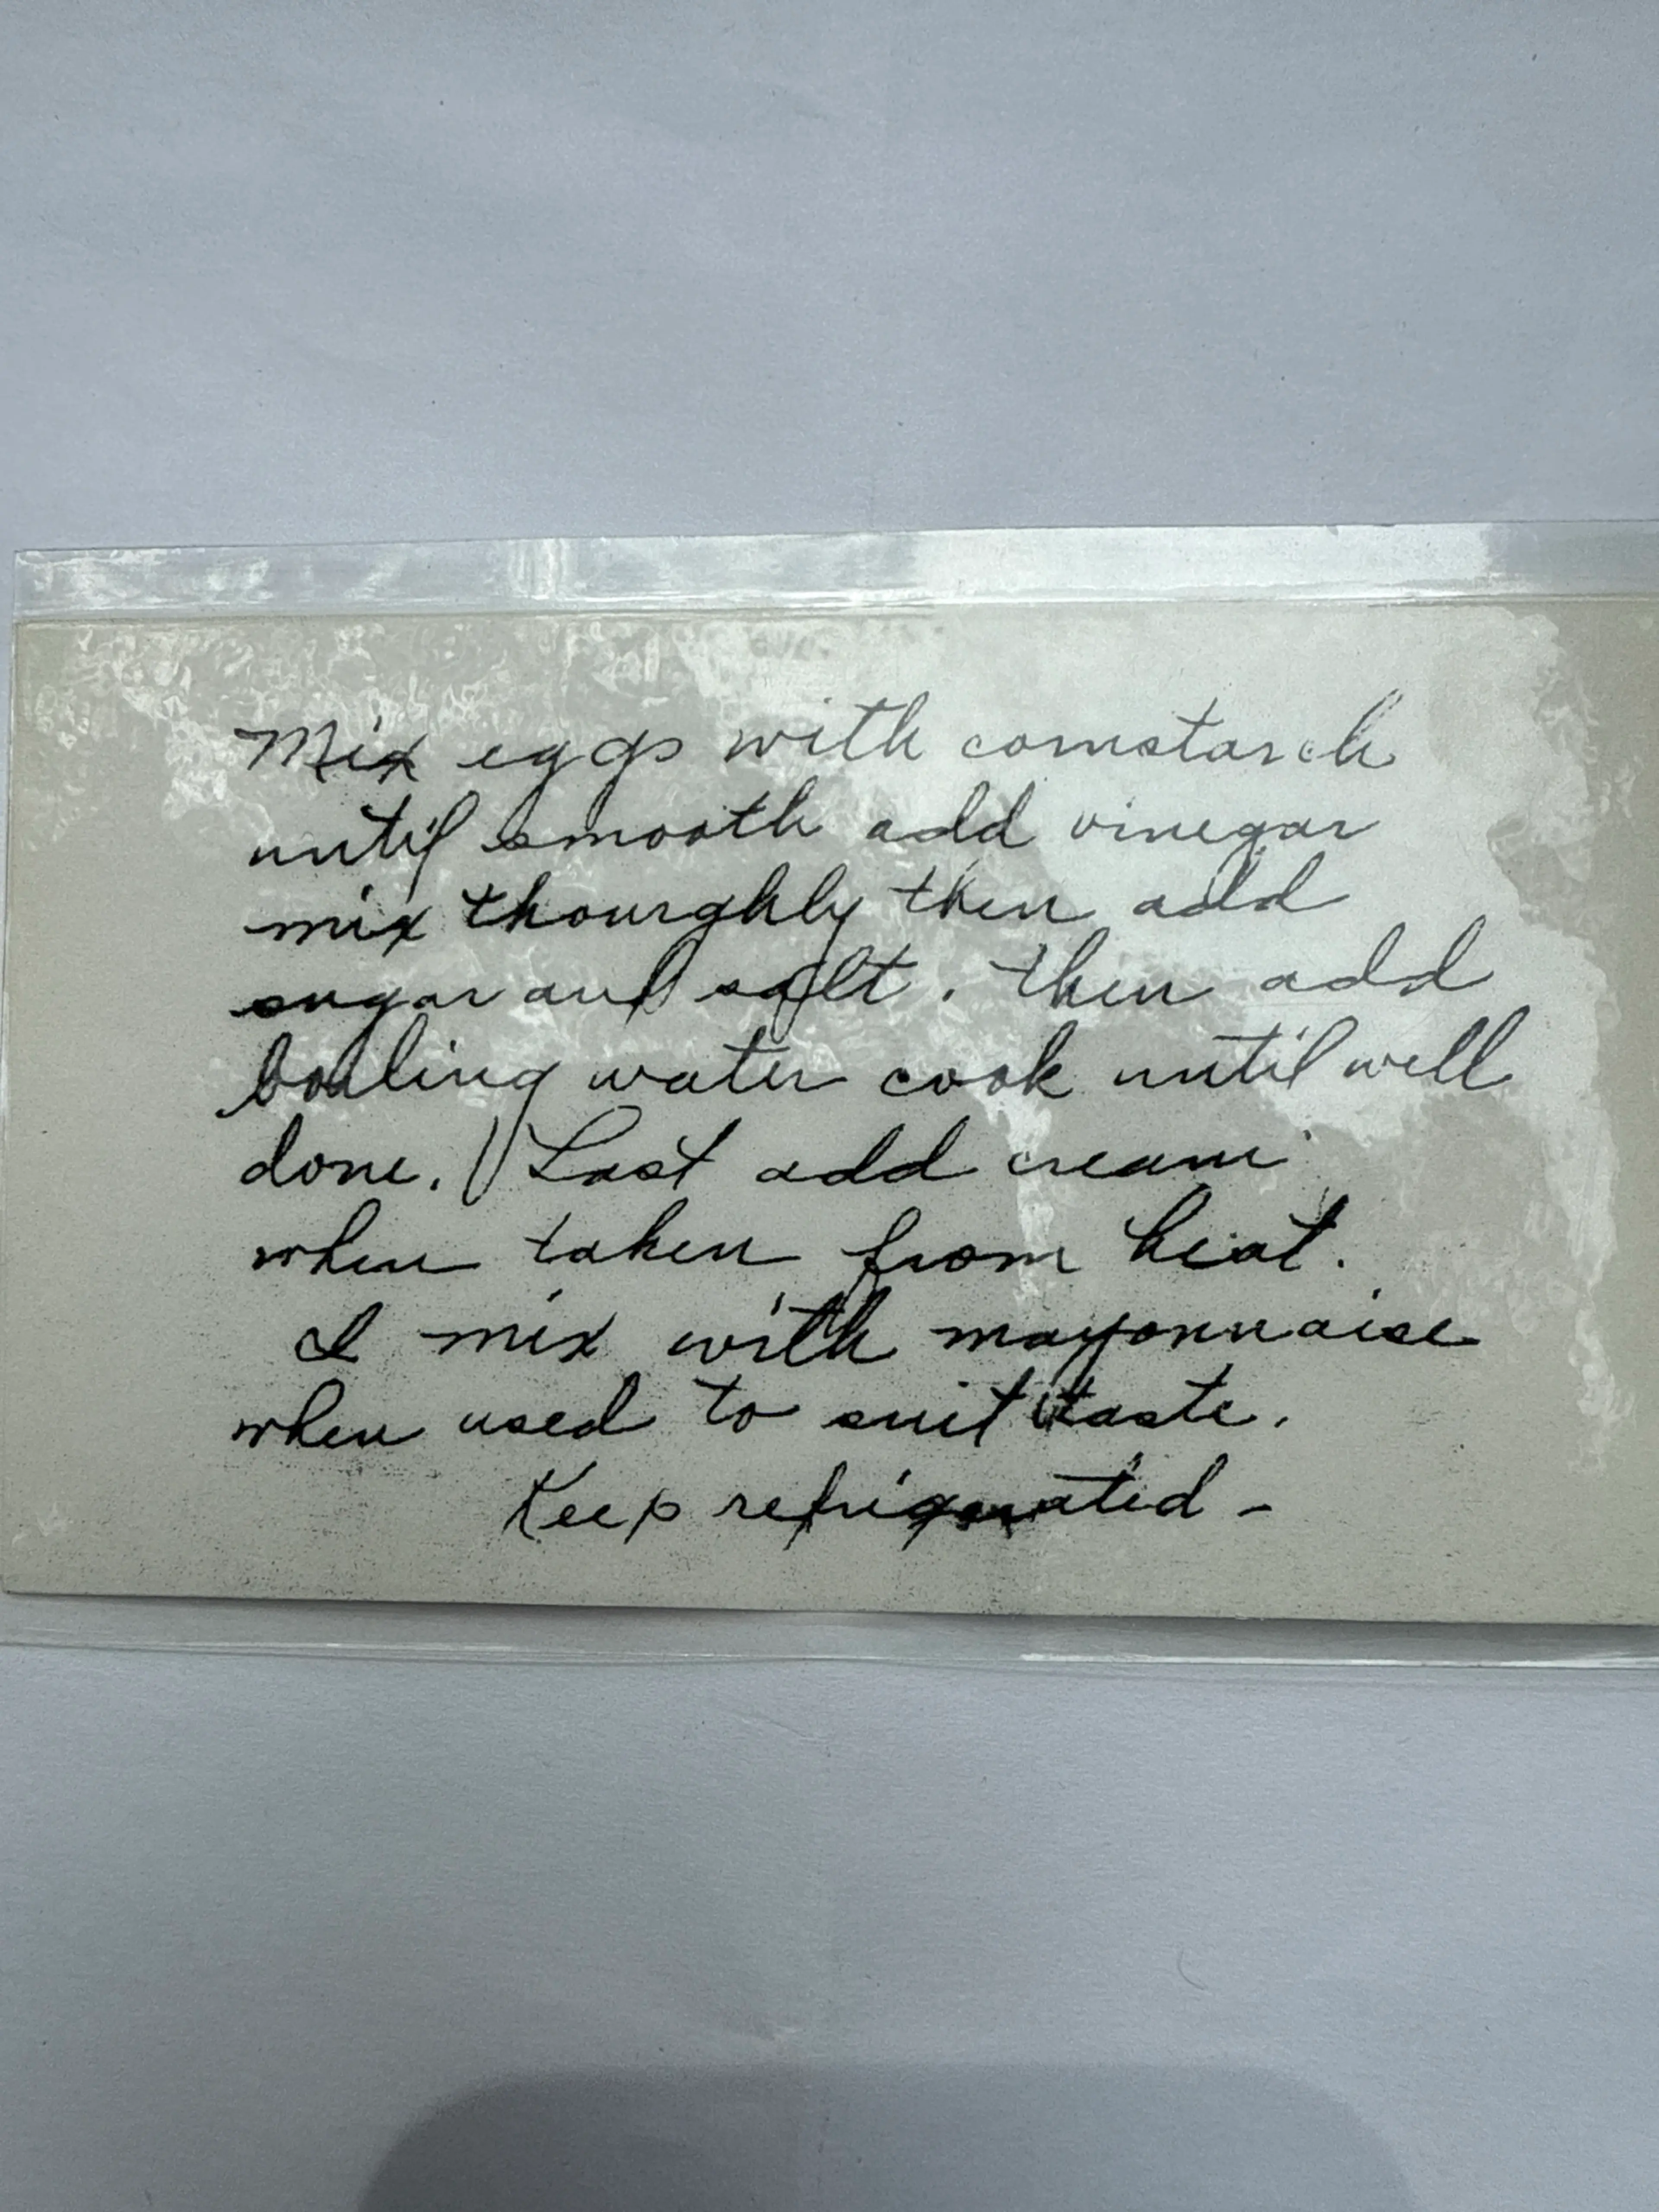 Mix eggs with cornstarch
until smooth add vinegar
mix thourghly then add
sugar and salt. then add
boiling water cook until well
done. Last add cream
when taken from heat.
I mix with mayonnaise
when used to suit taste.
Keep refrigerated -